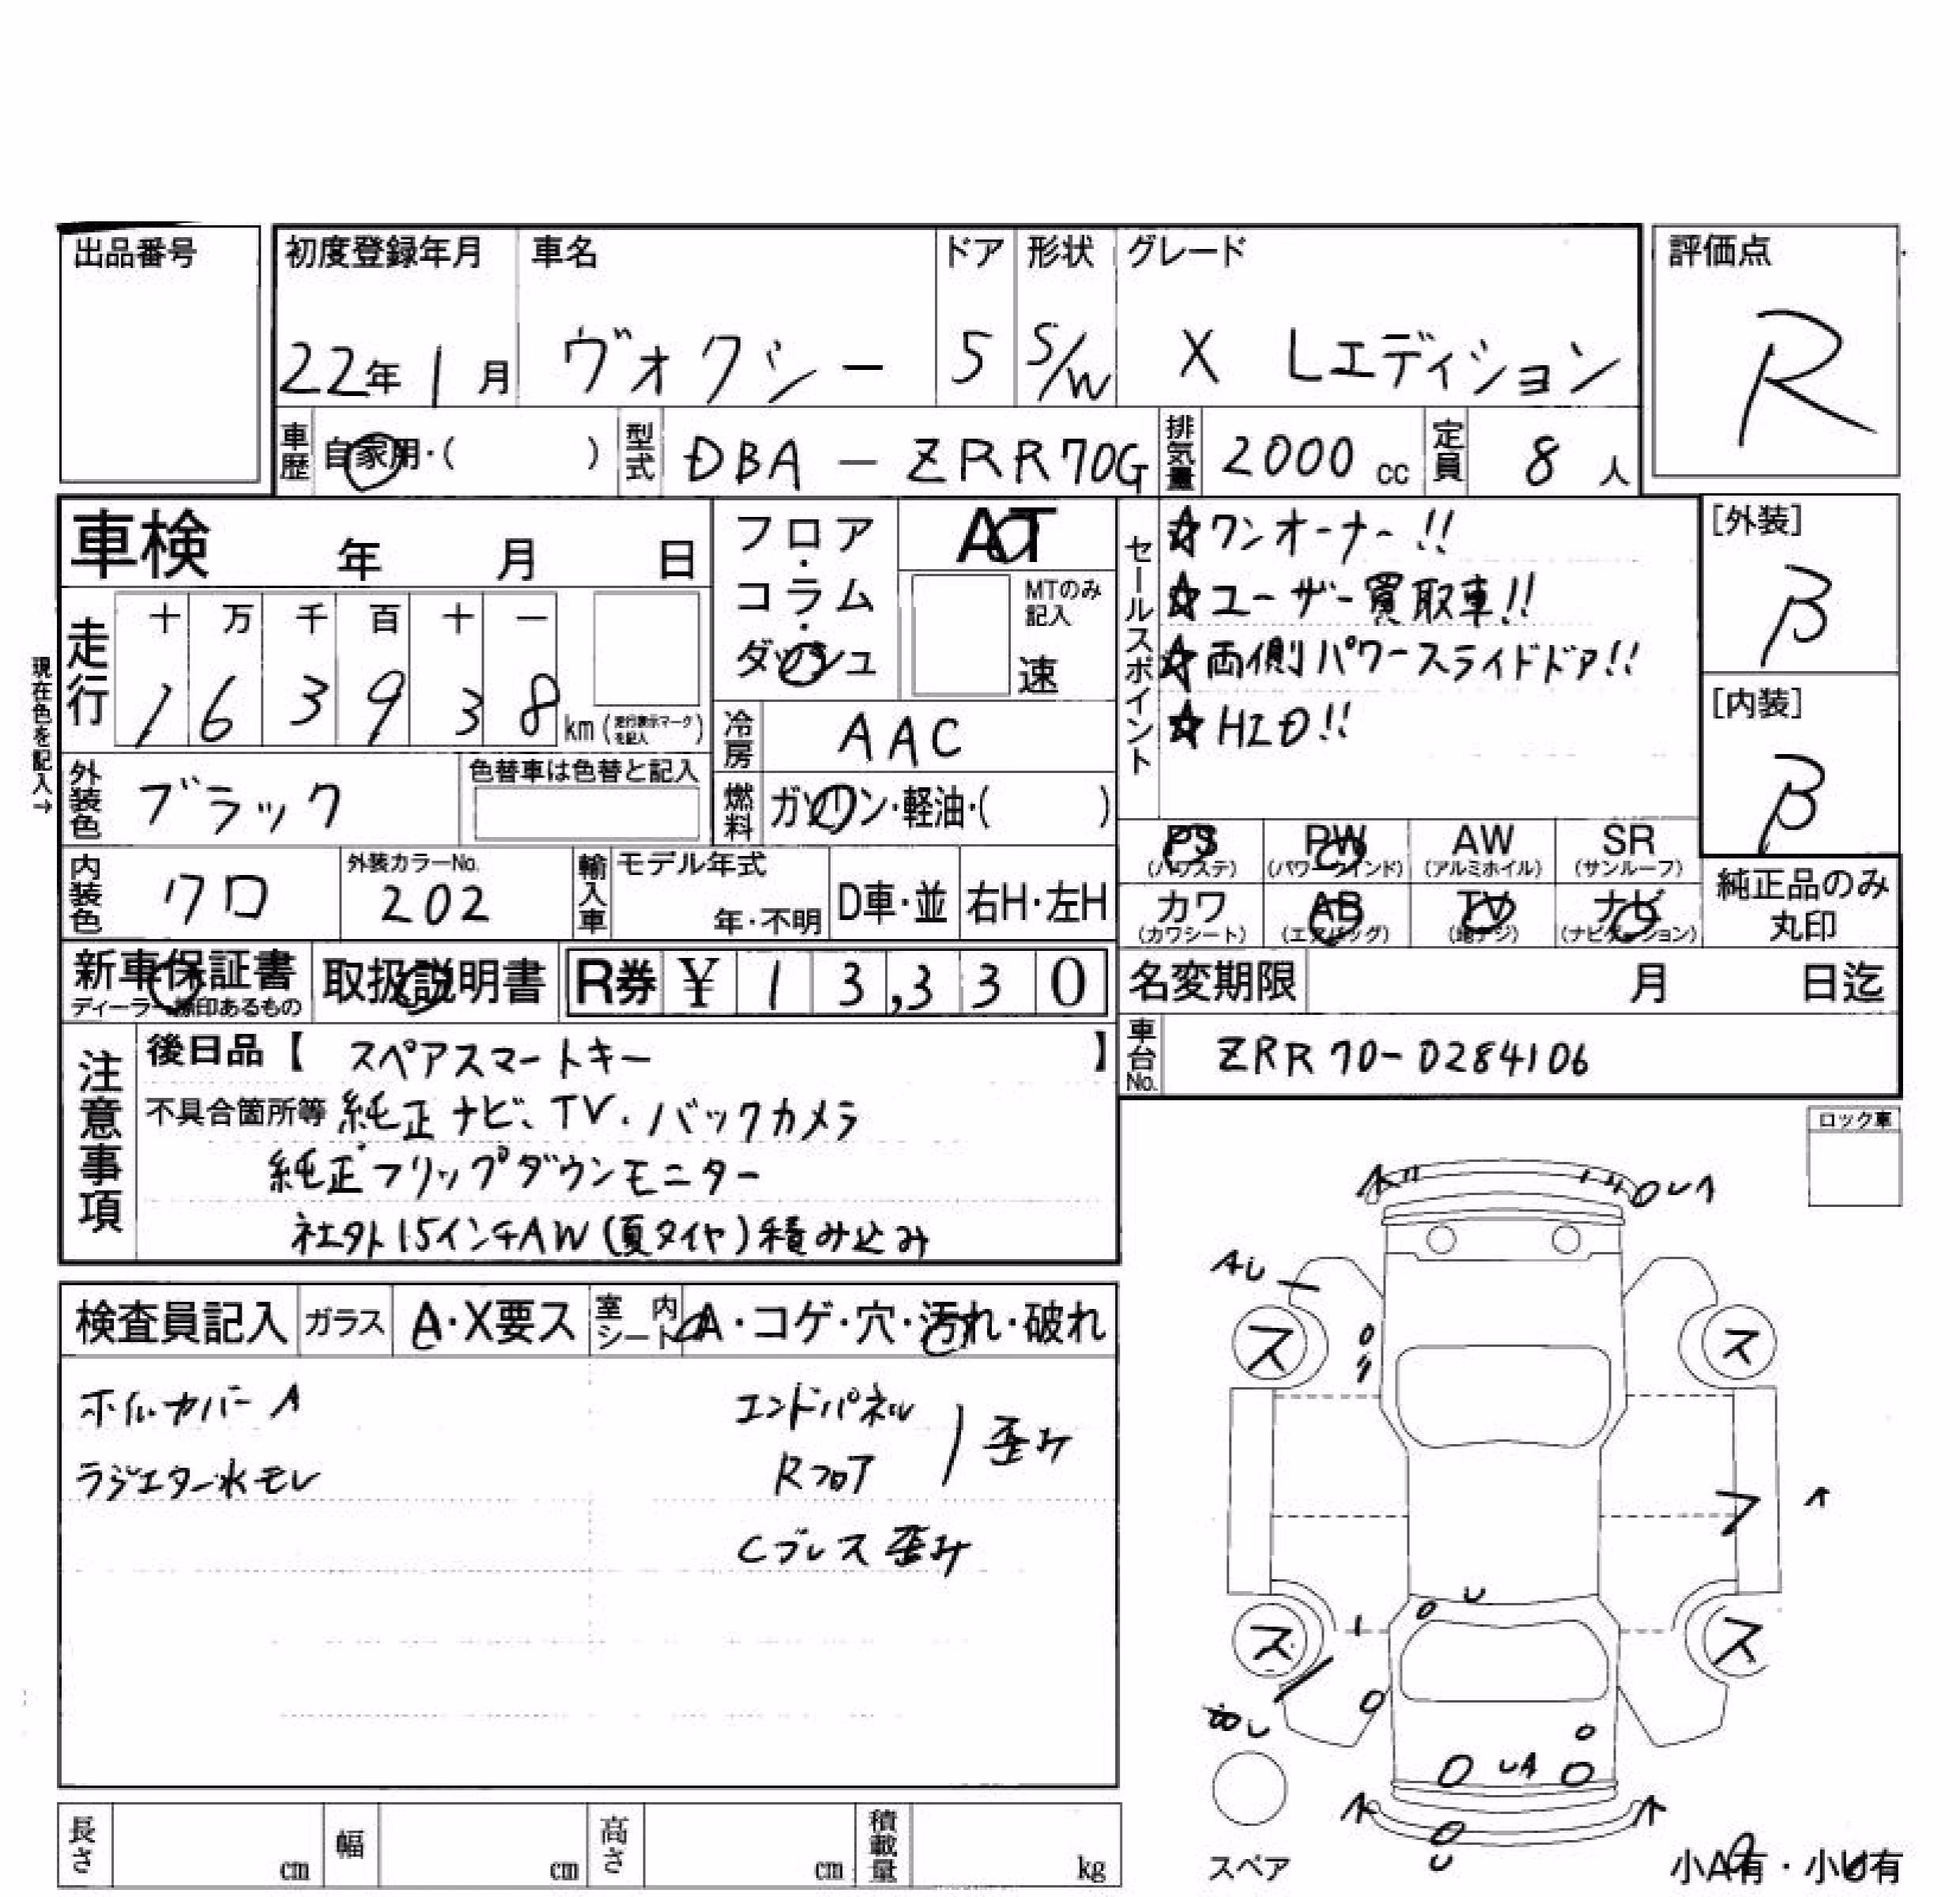 出品番号
初度登録年月 車名 ドア 形状 グレード 評価点
22年1月 ヴォクシー 5 S/W X Lエディション R
車歴 自家用・( ) 型式 DBA-ZRR70G 排気量 2000cc 定員 8人
車検 年 月 日
フロア・コラム・ダッシュ
AT
MTのみ記入
速
セールスポイント
☆ワンオーナー!!
☆ユーザー買取車!!
☆両側パワースライドドア!!
☆HID!!
[外装]
β
[内装]
β
現在色を記入→
走行 十 万 千 百 十 一
1 6 3 9 3 8 km (走行表示マークを記入)
冷房 AAC
燃料 ガソリン・軽油・( )
外装色 ブラック 色替車は色替と記入
内装色 クロ 外装カラーNo. 202
輸入車 モデル年式 年・不明 D車・並 右H・左H
PS (パワステ) PW (パワーウインド) AW (アルミホイル) SR (サンルーフ)
カワ (カワシート) AB (エアバッグ) TV (地デジ) ナビ (ナビゲーション)
純正品のみ丸印
新車保証書 取扱説明書 R券 ¥ 1 3,3 3 0
名変期限 月 日迄
車台No. ZRR70-0284106
注意事項
後日品【 スペアスマートキー 】
不具合箇所等 純正ナビ、TV.バックカメラ
純正フリップダウンモニター
社外15インチAW(夏タイヤ)積み込み
ロック車
検査員記入 ガラス A・X要ス 室内シート A・コゲ・穴・汚れ・破れ
ホイルカバーA
ラジエター水モレ
エンドパネル
Rフロア
歪み
Cブレス歪み
UA
AU
ス ス
ス ス
U
UA
U
スペア
小A有・小U有
長さ cm 幅 cm 高さ cm 積載量 kg